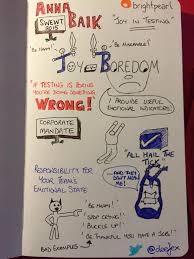 ANNA
BAIK
SWEWT
2015
@brightpearl
"JOY IN TESTING"
"BE HAPPY!"
"BE MISERABLE!"
JOY BOREDOM
"IF TESTING IS BORING
YOU'RE DOING SOMETHING
WRONG!"
I PROVIDE USEFUL
EMOTIONAL INDICATORS!
CORPORATE
MANDATE
"ALL HAIL
THE TICK"
RESPONSIBILITY FOR
YOUR TEAM'S
EMOTIONAL STATE
"AND THEY
DON'T NOTICE
ME!"
"BE HAPPY!"
"STOP CRYING!"
"BUCKLE UP!"
"BE THANKFUL YOU HAVE A JOB!"
BAD EXAMPLES